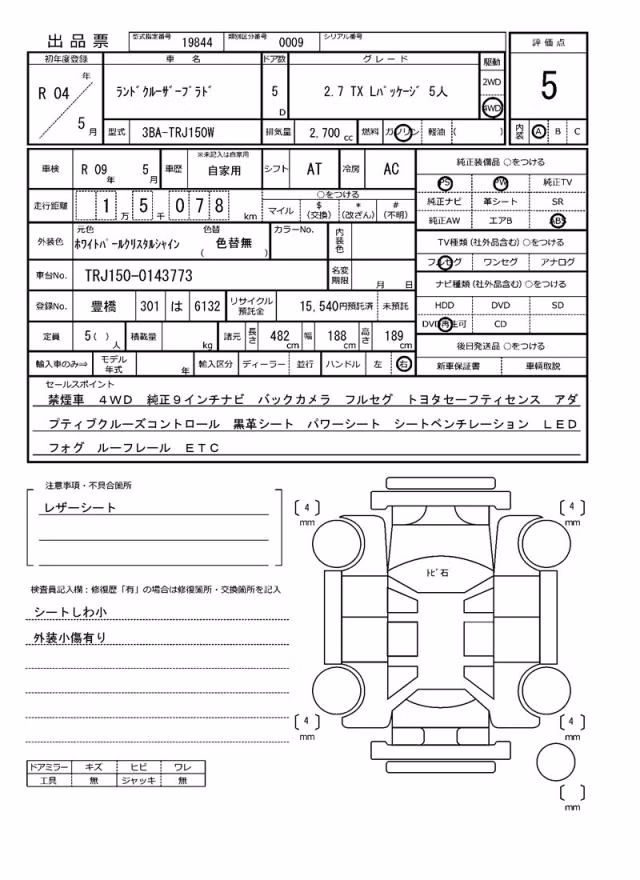 出品票 型式指定番号 19844 類別区分番号 0009 シリアル番号
初年度登録 車 名 ドア数 グレード 駆動 評価点
R 04 年 5 月 ﾗﾝﾄﾞｸﾙｰｻﾞｰﾌﾟﾗﾄﾞ 5 D 2.7 TX Lﾊﾟｯｹｰｼﾞ 5人 2WD 4WD 5
型式 3BA-TRJ150W 排気量 2,700 cc 燃料 ガソリン 軽油 ( ) 内装 A B C
車検 R 09 年 5 月 車歴 ※未記入は自家用 自家用 シフト AT 冷房 AC 純正装備品 ○をつける
PS PW 純正TV
走行距離 1 万 5 千 0 7 8 km ○をつける
マイル $ (交換) * (改ざん) # (不明)
純正ナビ 革シート SR
純正AW エアB ABS
外装色 元色 ﾎﾜｲﾄﾊﾟｰﾙｸﾘｽﾀﾙｼｬｲﾝ 色替 ( 色替無 ) カラーNo. 内装色
TV種類 (社外品含む) ○をつける
フルセグ ワンセグ アナログ
車台No. TRJ150-0143773 名変期限 月 日
ナビ種類 (社外品含む) ○をつける
登録No. 豊橋 301 は 6132 リサイクル預託金 15,540円預託済 未預託
HDD DVD SD
DVD再生可 CD
定員 5( ) 人 積載量 kg 諸元 長さ 482 cm 幅 188 cm 高さ 189 cm
後日発送品 ○をつける
輸入車のみ⇨ モデル年式 年 輸入区分 ディーラー 並行 ハンドル 左 右
新車保証書 車輌取説
セールスポイント
禁煙車 4WD 純正9インチナビ バックカメラ フルセグ トヨタセーフティセンス アダ
プティブクルーズコントロール 黒革シート パワーシート シートベンチレーション LED
フォグ ルーフレール ETC
注意事項・不具合箇所
レザーシート
検査員記入欄：修復歴「有」の場合は修復箇所・交換箇所を記入
シートしわ小
外装小傷有り
ドアミラー キズ ヒビ ワレ
工具 無 ジャッキ 無
( 4 ) mm
( 4 ) mm
ﾄﾋﾞ石
( 4 ) mm
( 4 ) mm
( ) mm